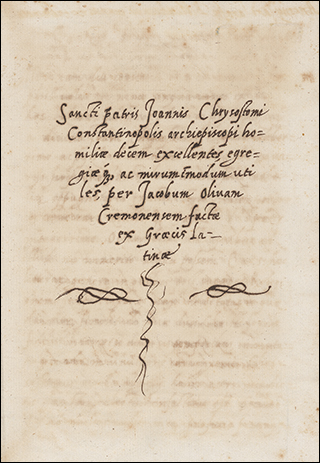 Sancti patris Joannis Chrysostomi
Constantinopolis archiepiscopi ho-
miliæ decem excellentes egre-
giæq́ꝫ ac mirum immodum uti
les per Jacobum Olivam
Cremonensem factæ
ex Græcis La-
tinæ